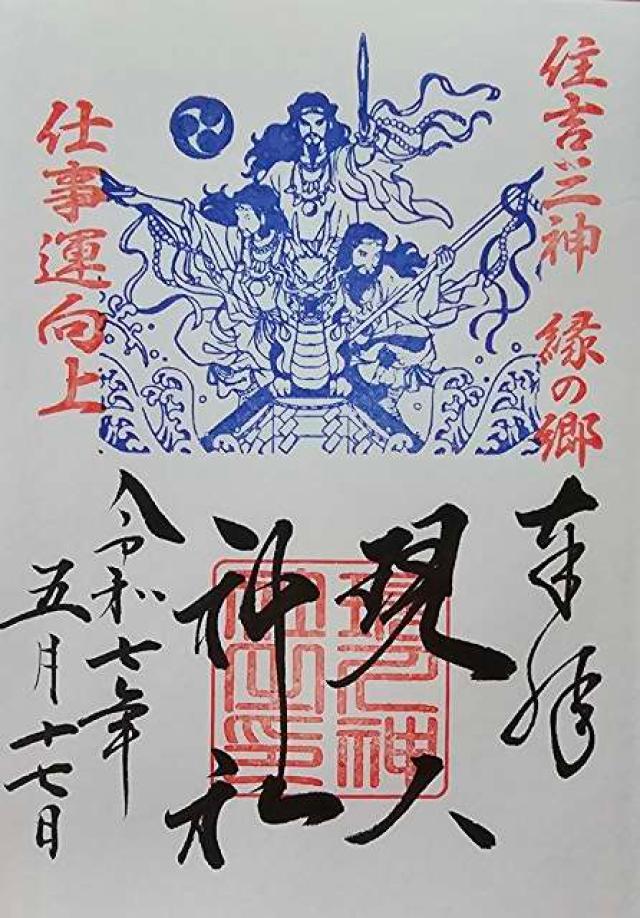 住吉三神　縁の郷
仕事運向上
奉拝
現人
神社
令和七年
五月十七日